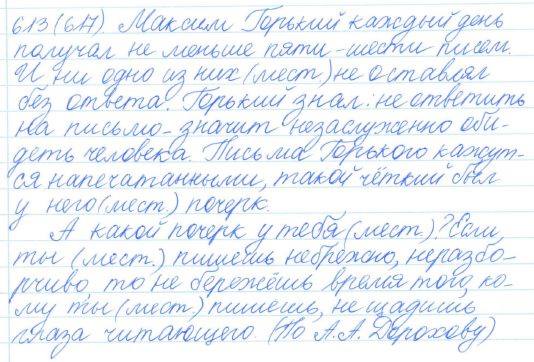 613 (617). Максим Горький каждый день
получал не меньше пяти-шести писем.
И ни одно из них (мест) не оставлял
без ответа. Горький знал: не ответить
на письмо - значит незаслуженно оби-
деть человека. Письма Горького кажут-
ся напечатанными, такой чёткий был
у него (мест) почерк.
А какой почерк у тебя (мест)? Если
ты (мест) пишешь небрежно, неразбо-
рчиво то не бережёшь время того, ко-
му ты (мест) пишешь, не щадишь
глаза читающего. (По А.А. Дорохову)